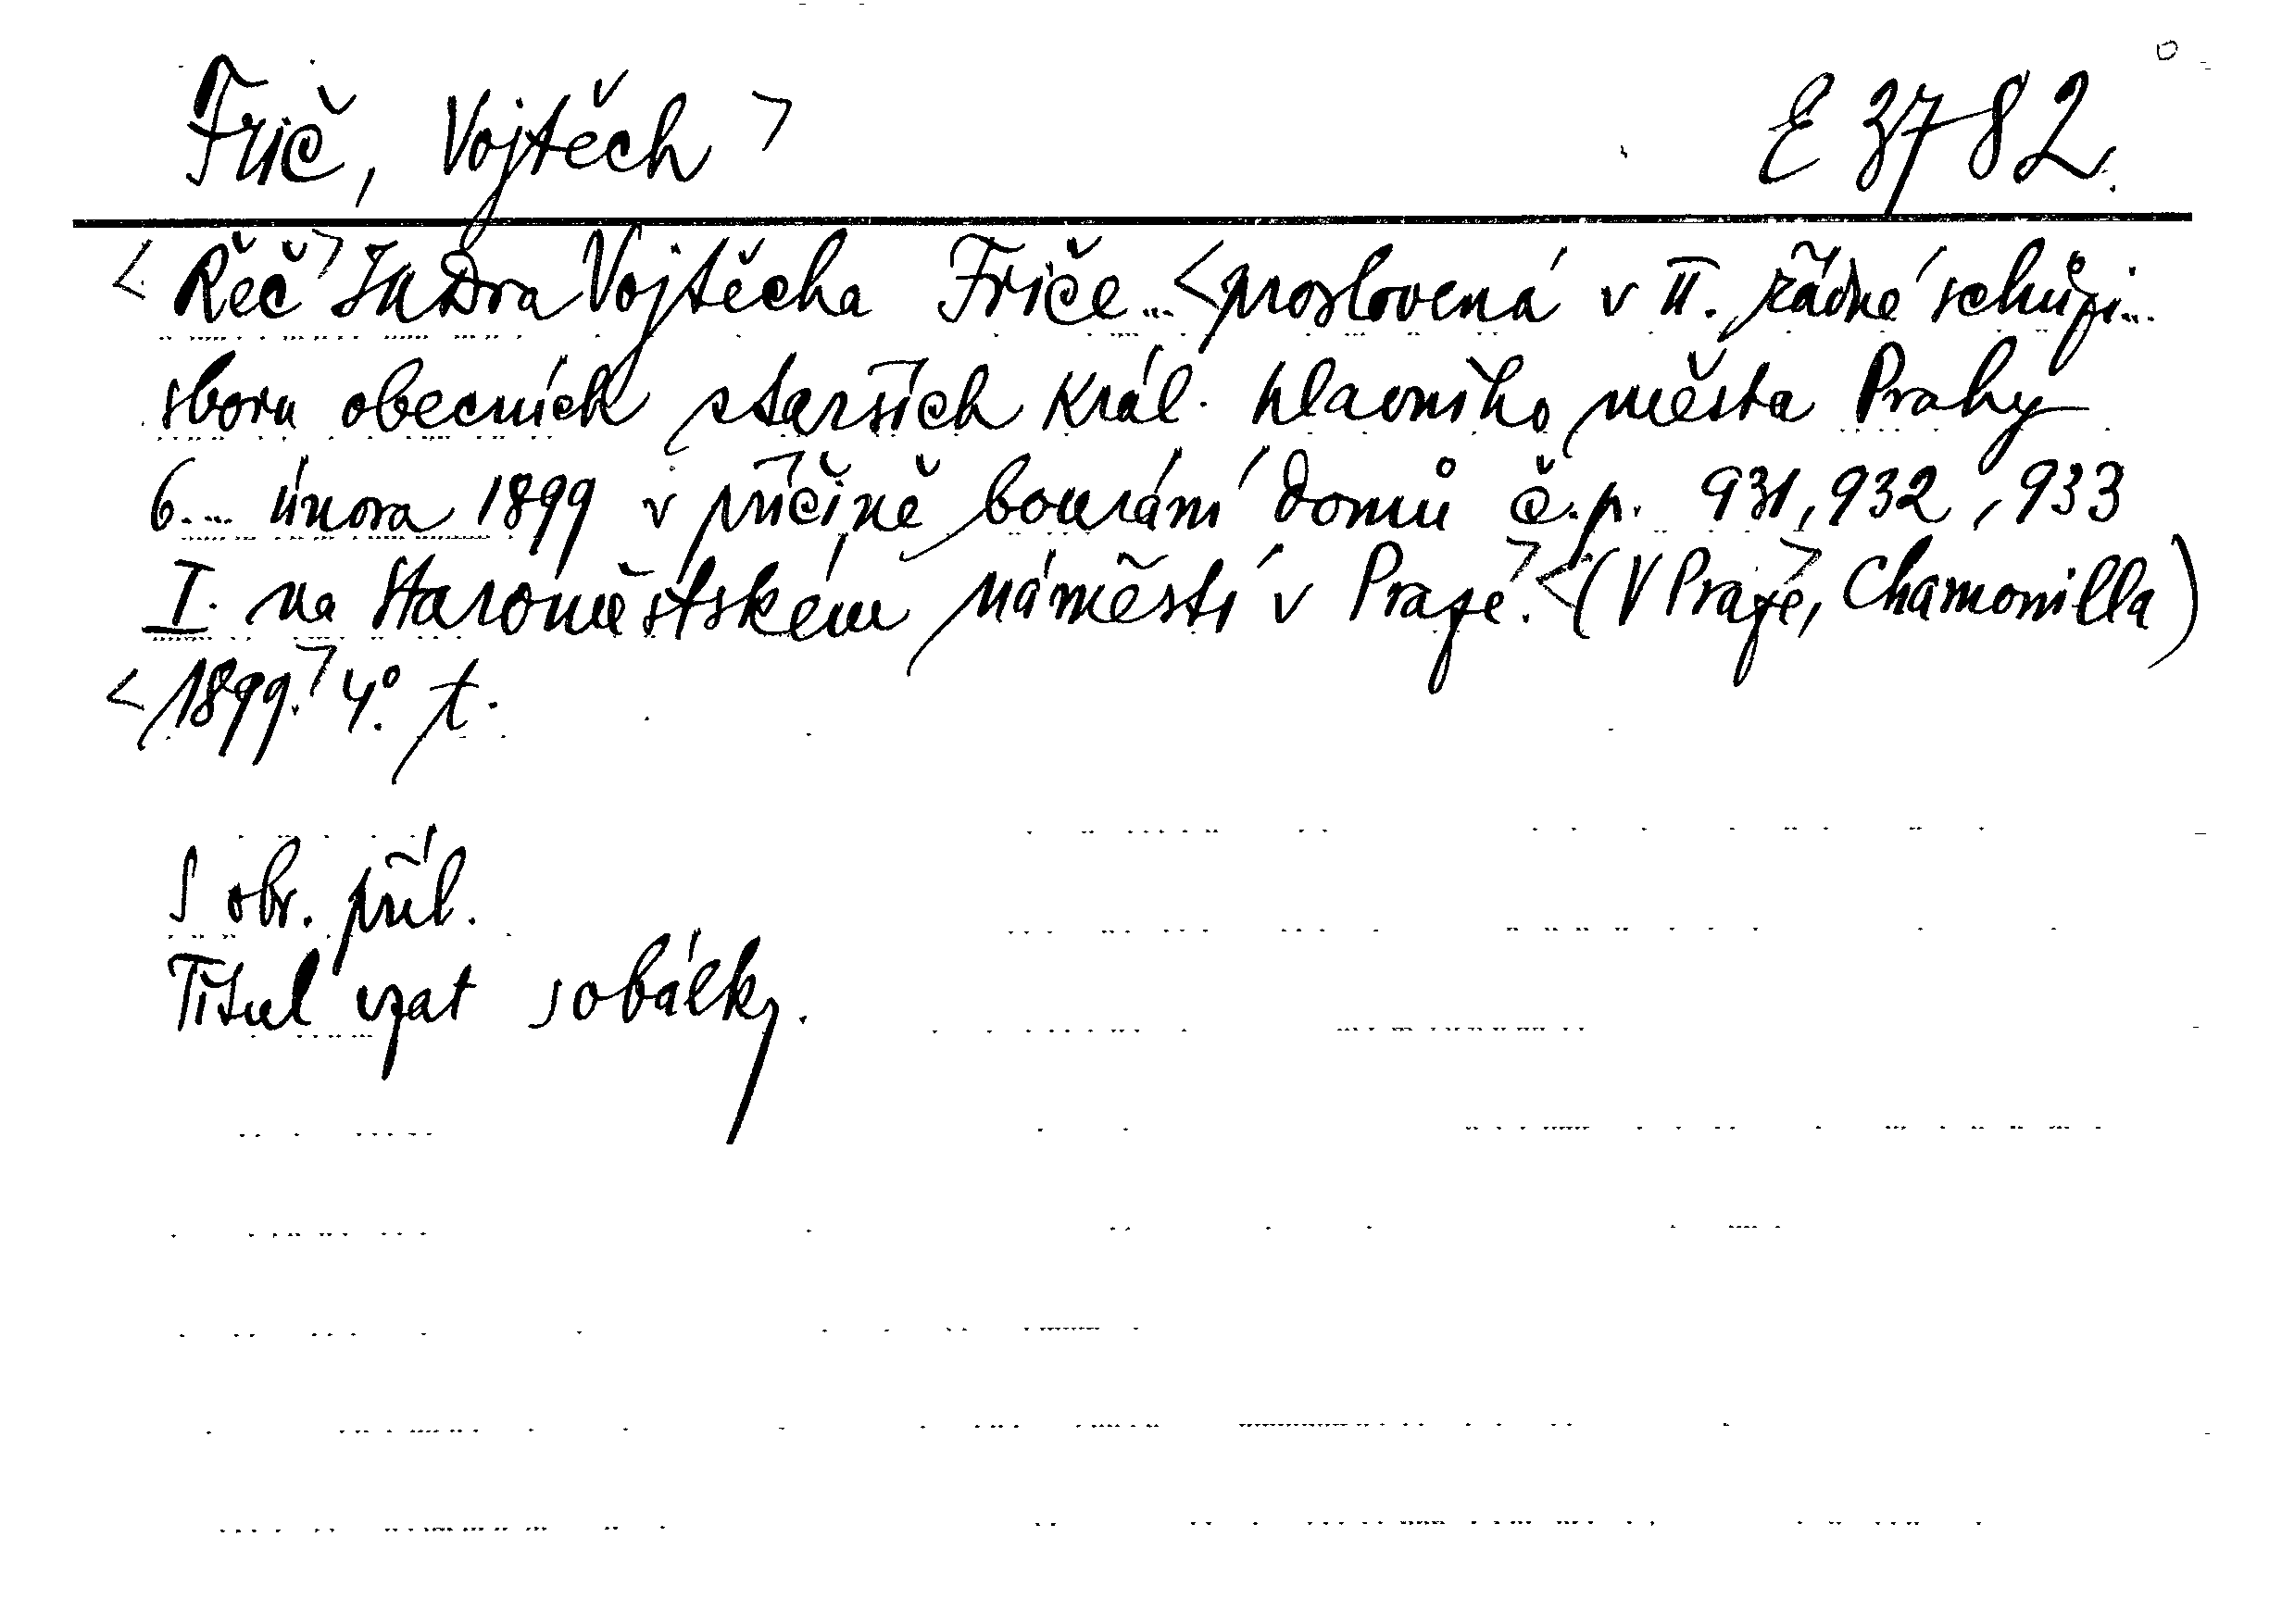 Frič, Vojtěch > E 3782.
< Řeč > JUDra Vojtěcha Friče... < proslovená v II. řádné schůzi...
sboru obecních starších král. hlavního města Prahy
6.... února 1899 v příčině bourání domů č.p. 931, 932, 933
I. na Staroměstském náměstí v Praze. > < (V Praze, > Chamonilla)
< 1899. > 4°. t.
S obr. příl.
Titul vzat s obálky.